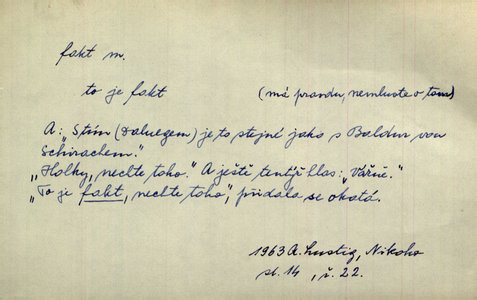 fakt m.
to je fakt (má pravdu, nemluvte o tom)
A: „S tím (Daluegem) je to stejné jako s Baldur von
Schirachem."
„Holky, nechte toho." A ještě tentýž hlas: „Vážně."
„To je fakt, nechte toho", přidala se okatá.
1963 A. Lustig, Nikoho
st. 14, ř. 22.